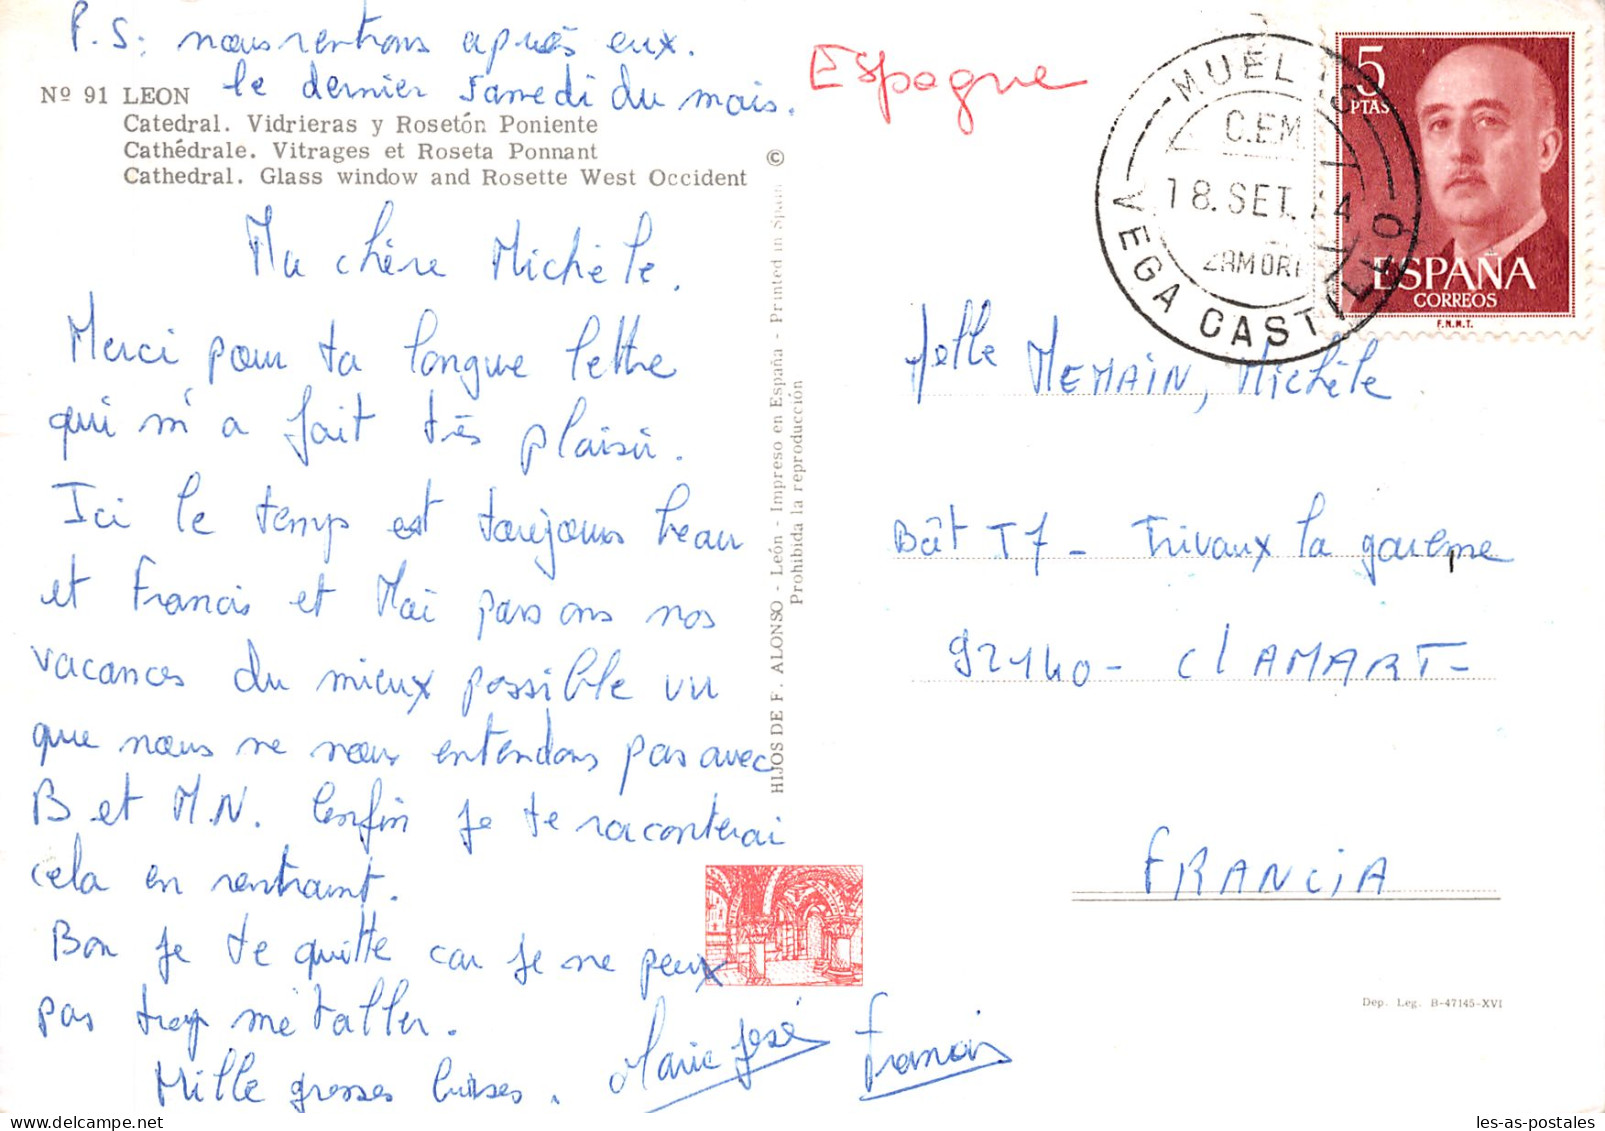 P.S: nous rentrons après eux.
le dernier samedi du mois.
Nº 91 LEON
Catedral. Vidrieras y Rosetón Poniente
Cathédrale. Vitrages et Roseta Ponnant
Cathedral. Glass window and Rosette West Occident
Ma chère Michèle.
Merci pour ta longue lettre
qui m'a fait très plaisir.
Ici le temps est toujours beau
et Francis et Moi passons nos
vacances du mieux possible vu
que nous ne nous entendons pas avec
B et M.N. Enfin je te raconterai
cela en rentrant.
Bon je te quitte car je ne peux
pas trop m'étaller.
Mille grosses bises.
Marie José
Francis
HIJOS DE F. ALONSO - León - Impreso en España - Printed in Spain ©
Prohibida la reproducción
Espagne
MUELAS
C.E.M.
18. SET. 74
ZAMORA
VEGA CASTILLO
5
PTAS
ESPAÑA
CORREOS
F.N.M.T.
Melle MEMAIN, Michèle.
Bât T7 - Trivaux la garenne
92140 - ClAMART -
FRANCiA
Dep. Leg. B-47145-XVI
les-as-postales